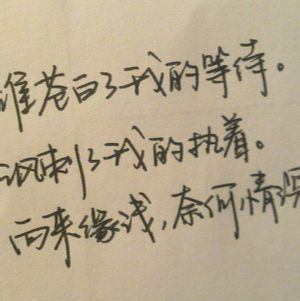 谁苍白了我的等待。
讽刺了我的执着。
向来缘浅,奈何情深